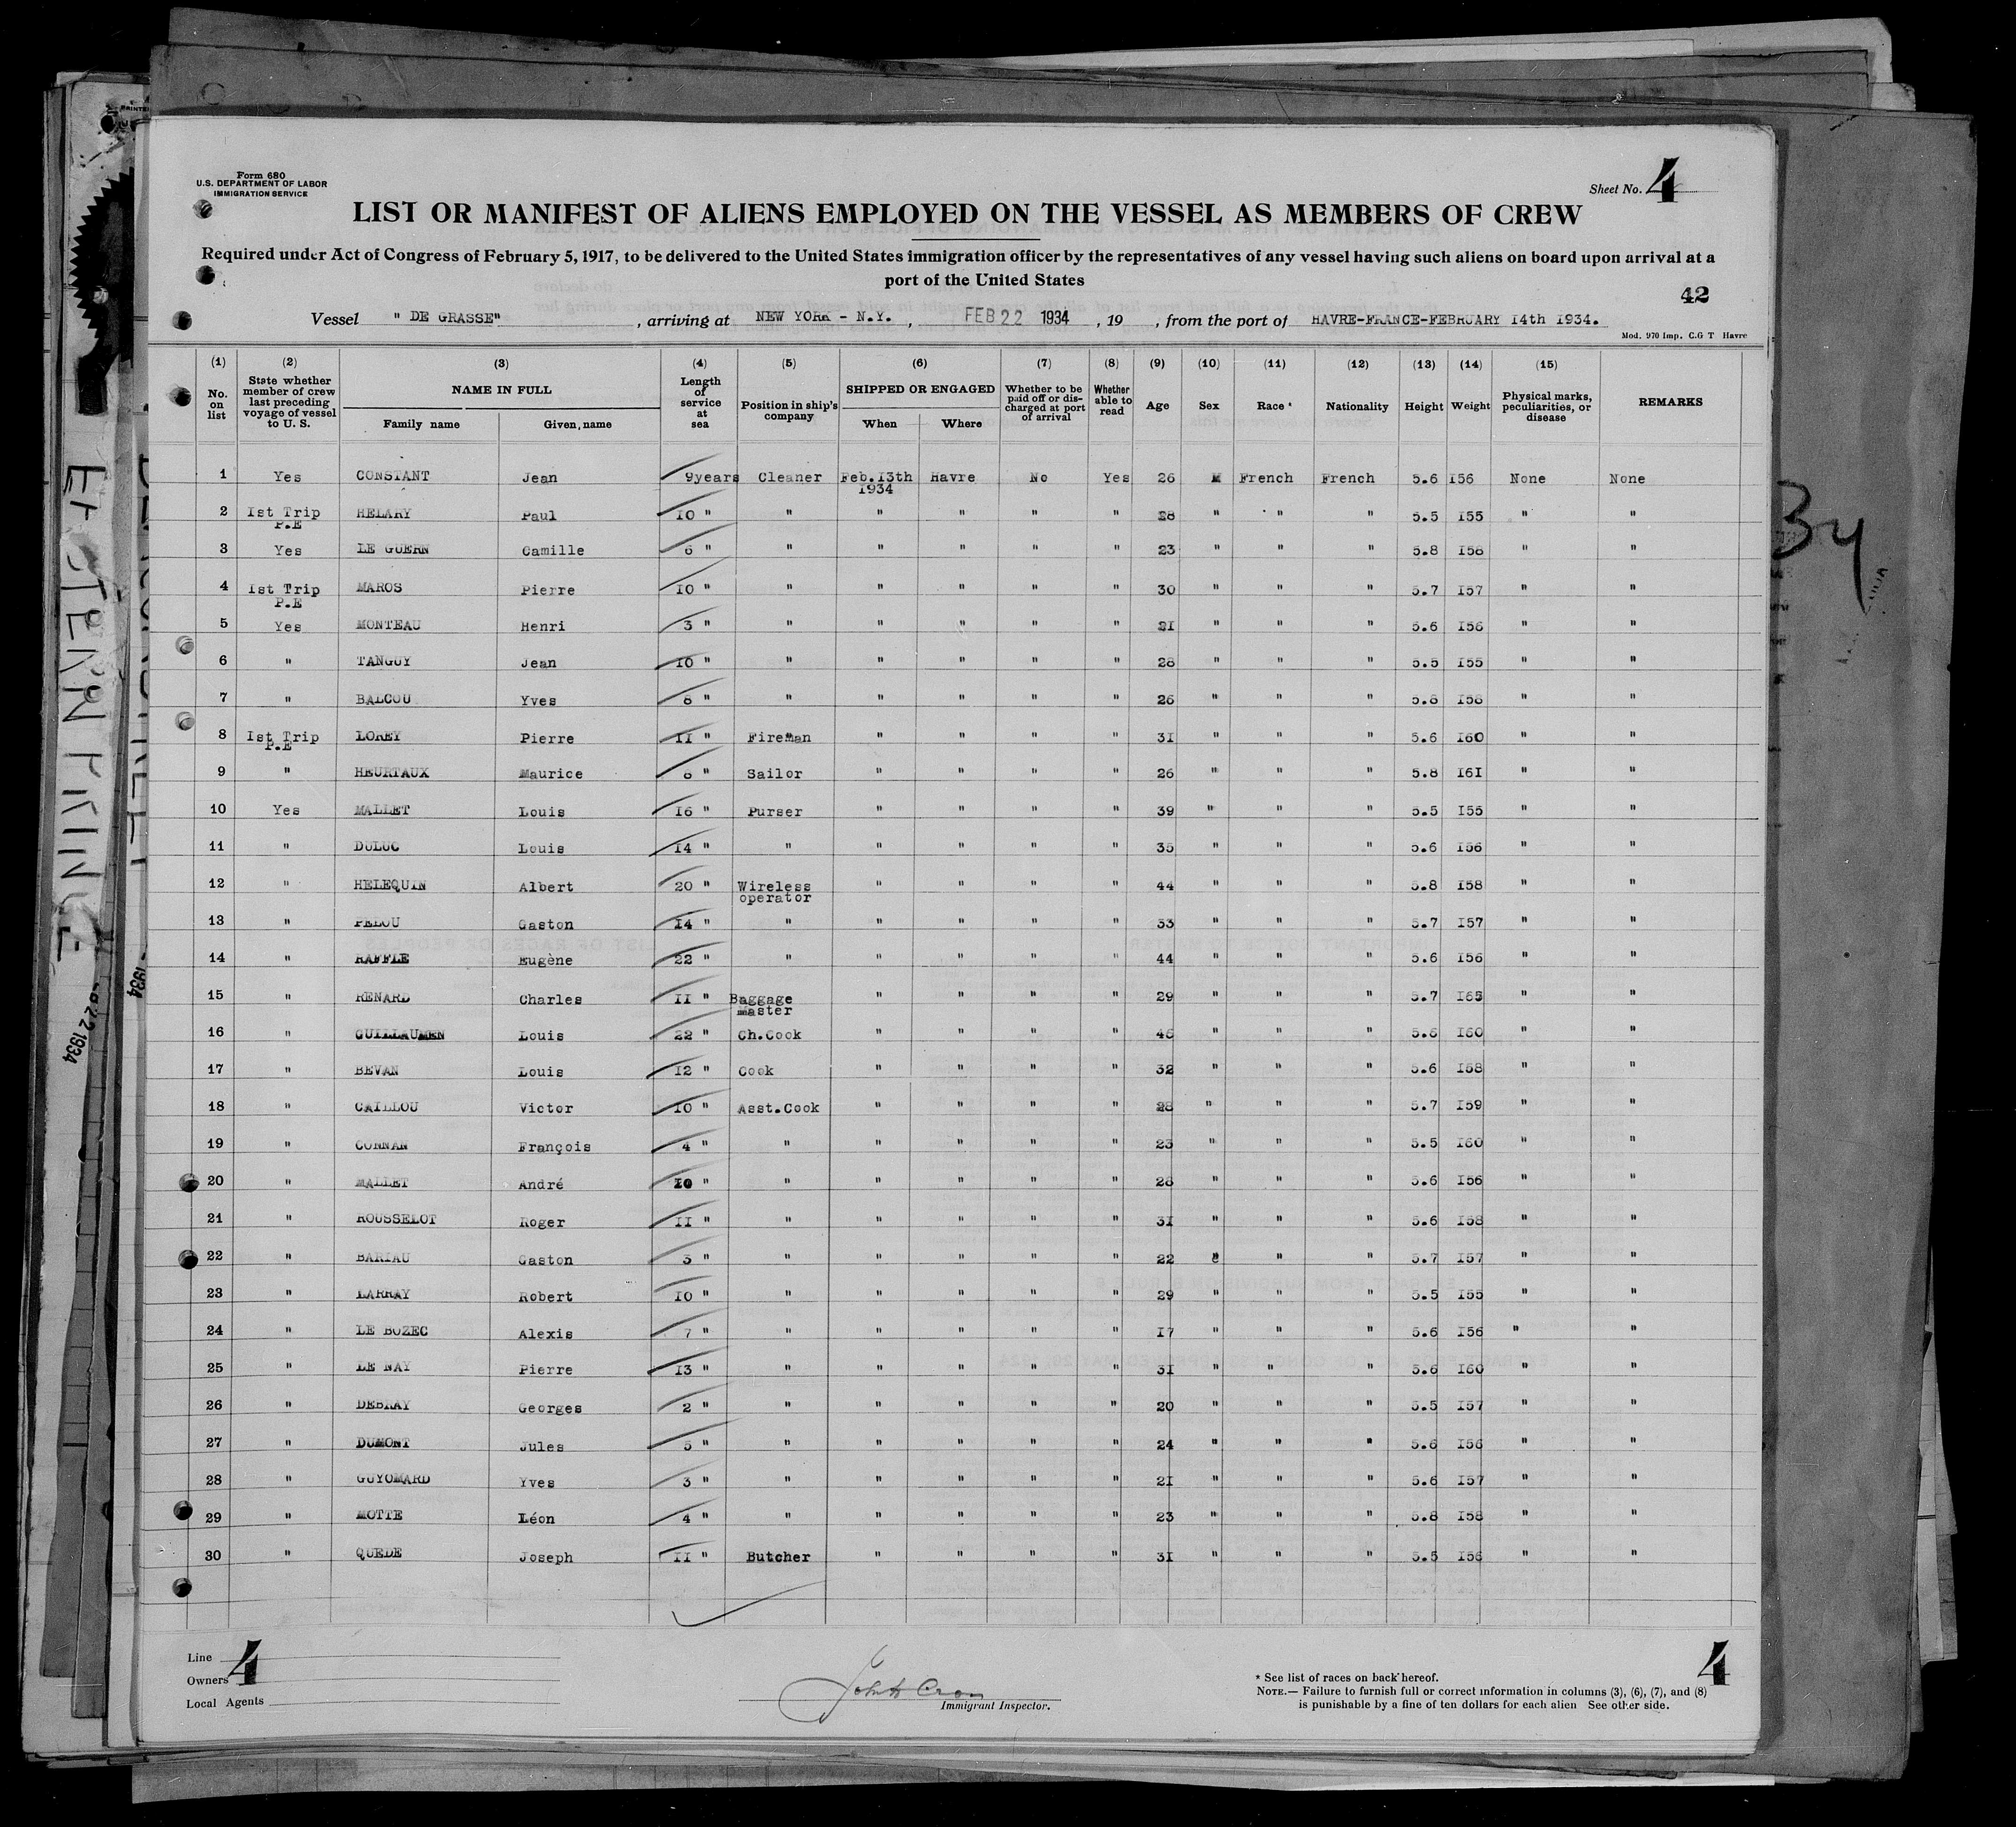 Form 680
U.S. DEPARTMENT OF LABOR
IMMIGRATION SERVICE
Sheet No. 4
LIST OR MANIFEST OF ALIENS EMPLOYED ON THE VESSEL AS MEMBERS OF CREW
Required under Act of Congress of February 5, 1917, to be delivered to the United States immigration officer by the representatives of any vessel having such aliens on board upon arrival at a
port of the United States
42
Vessel " DE GRASSE" , arriving at NEW YORK - N.Y. , FEB 22 1934 , 19 , from the port of HAVRE-FRANCE-FEBRUARY 14th 1934.
Mod. 970 Imp. C.G T Havre
(1) (2) (3) (4) (5) (6) (7) (8) (9) (10) (11) (12) (13) (14) (15)
No. on list State whether member of crew last preceding voyage of vessel to U. S. NAME IN FULL Family name Given name Length of service at sea Position in ship's company SHIPPED OR ENGAGED When Where Whether to be paid off or discharged at port of arrival Whether able to read Age Sex Race * Nationality Height Weight Physical marks, peculiarities, or disease REMARKS
1 Yes CONSTANT Jean 9years Cleaner Feb.13th 1934 Havre No Yes 26 M French French 5.6 I56 None None
2 Ist Trip P.E HELARY Paul I0 " " " " " " 28 " " " 5.5 I55 " "
3 Yes LE GUERN Camille 6 " " " " " " 23 " " " 5.8 I58 " "
4 Ist Trip P.E MAROS Pierre I0 " " " " " " 30 " " " 5.7 I57 " "
5 Yes MONTEAU Henri 3 " " " " " " 2I " " " 5.6 I56 " "
6 " TANGUY Jean I0 " " " " " " 28 " " " 5.5 I55 " "
7 " BALCOU Yves 8 " " " " " " 26 " " " 5.8 I58 " "
8 Ist Trip P.E LOREY Pierre II " Fireman " " " " 3I " " " 5.6 I60 " "
9 " HEURTAUX Maurice 8 " Sailor " " " " 26 " " " 5.8 I6I " "
10 Yes MALLET Louis I6 " Purser " " " " 39 " " " 5.5 I55 " "
11 " DULUC Louis I4 " " " " " " 35 " " " 5.6 I56 " "
12 " HELEQUIN Albert 20 " Wireless operator " " " " 44 " " " 5.8 I58 " "
13 " PELOU Gaston I4 " " " " " " 33 " " " 5.7 I57 " "
14 " RAFFLE Eugène 22 " " " " " " 44 " " " 5.6 I56 " "
15 " RENARD Charles II " Baggage master " " " " 29 " " " 5.7 I65 " "
16 " GUILLAUMEN Louis 22 " Ch.Cook " " " " 46 " " " 5.6 I60 " "
17 " BEVAN Louis I2 " Cook " " " " 32 " " " 5.6 I58 " "
18 " CAILLOU Victor I0 " Asst.Cook " " " " 28 " " " 5.7 I59 " "
19 " CONNAN François 4 " " " " " " 23 " " " 5.5 I60 " "
20 " MALLET André I0 " " " " " " 28 " " " 5.6 I56 " "
21 " ROUSSELOT Roger II " " " " " " 3I " " " 5.6 I58 " "
22 " BARIAU Gaston 3 " " " " " " 22 " " " 5.7 I57 " "
23 " LARRAY Robert I0 " " " " " " 29 " " " 5.5 I55 " "
24 " LE BOZEC Alexis 7 " " " " " " I7 " " " 5.6 I56 " "
25 " LE NAY Pierre I3 " " " " " " 3I " " " 5.6 I60 " "
26 " DEBRAY Georges 2 " " " " " " 20 " " " 5.5 I57 " "
27 " DUMONT Jules 5 " " " " " " 24 " " " 5.6 I56 " "
28 " GUYOMARD Yves 3 " " " " " " 2I " " " 5.6 I57 " "
29 " MOTTE Léon 4 " " " " " " 23 " " " 5.8 I58 " "
30 " QUEDE Joseph II " Butcher " " " " 3I " " " 5.5 I56 " "
Line
Owners 4
Local Agents
John Cron
Immigrant Inspector.
* See list of races on back hereof.
NOTE.— Failure to furnish full or correct information in columns (3), (6), (7), and (8)
is punishable by a fine of ten dollars for each alien See other side.
4
EASTERN PRINCE
34